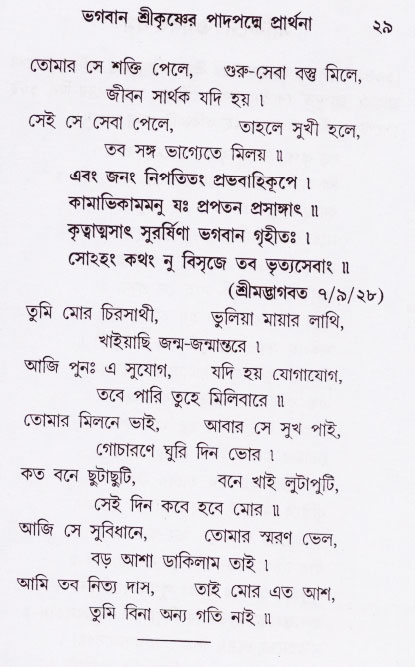 ভগবান শ্রীকৃষ্ণের পাদপদ্মে প্রার্থনা ২৯
তোমার সে শক্তি পেলে, গুরু-সেবা বস্তু মিলে,
জীবন সার্থক যদি হয় ।
সেই সে সেবা পেলে, তাহলে সুখী হলে,
তব সঙ্গ ভাগ্যেতে মিলয় ॥
এবং জনং নিপতিতং প্রভবাহিকূপে ।
কামাভিকামমনু যঃ প্রপতন প্রসাঙ্গাৎ ॥
কৃত্বাত্মসাৎ সুরর্ষিণা ভগবান গৃহীতঃ ।
সোঽহং কথং নু বিসৃজে তব ভৃত্যসেবাং ॥
(শ্রীমদ্ভাগবত ৭/৯/২৮)
তুমি মোর চিরসাথী, ভুলিয়া মায়ার লাথি,
খাইয়াছি জন্ম-জন্মান্তরে ।
আজি পুনঃ এ সুযোগ, যদি হয় যোগাযোগ,
তবে পারি তুহে মিলিবারে ॥
তোমার মিলনে ভাই, আবার সে সুখ পাই,
গোচারণে ঘুরি দিন ভোর ।
কত বনে ছুটাছুটি, বনে খাই লুটাপুটি,
সেই দিন কবে হবে মোর ॥
আজি সে সুবিধানে, তোমার স্মরণ ভেল,
বড় আশা ডাকিলাম তাই ।
আমি তব নিত্য দাস, তাই মোর এত আশ,
তুমি বিনা অন্য গতি নাই ॥